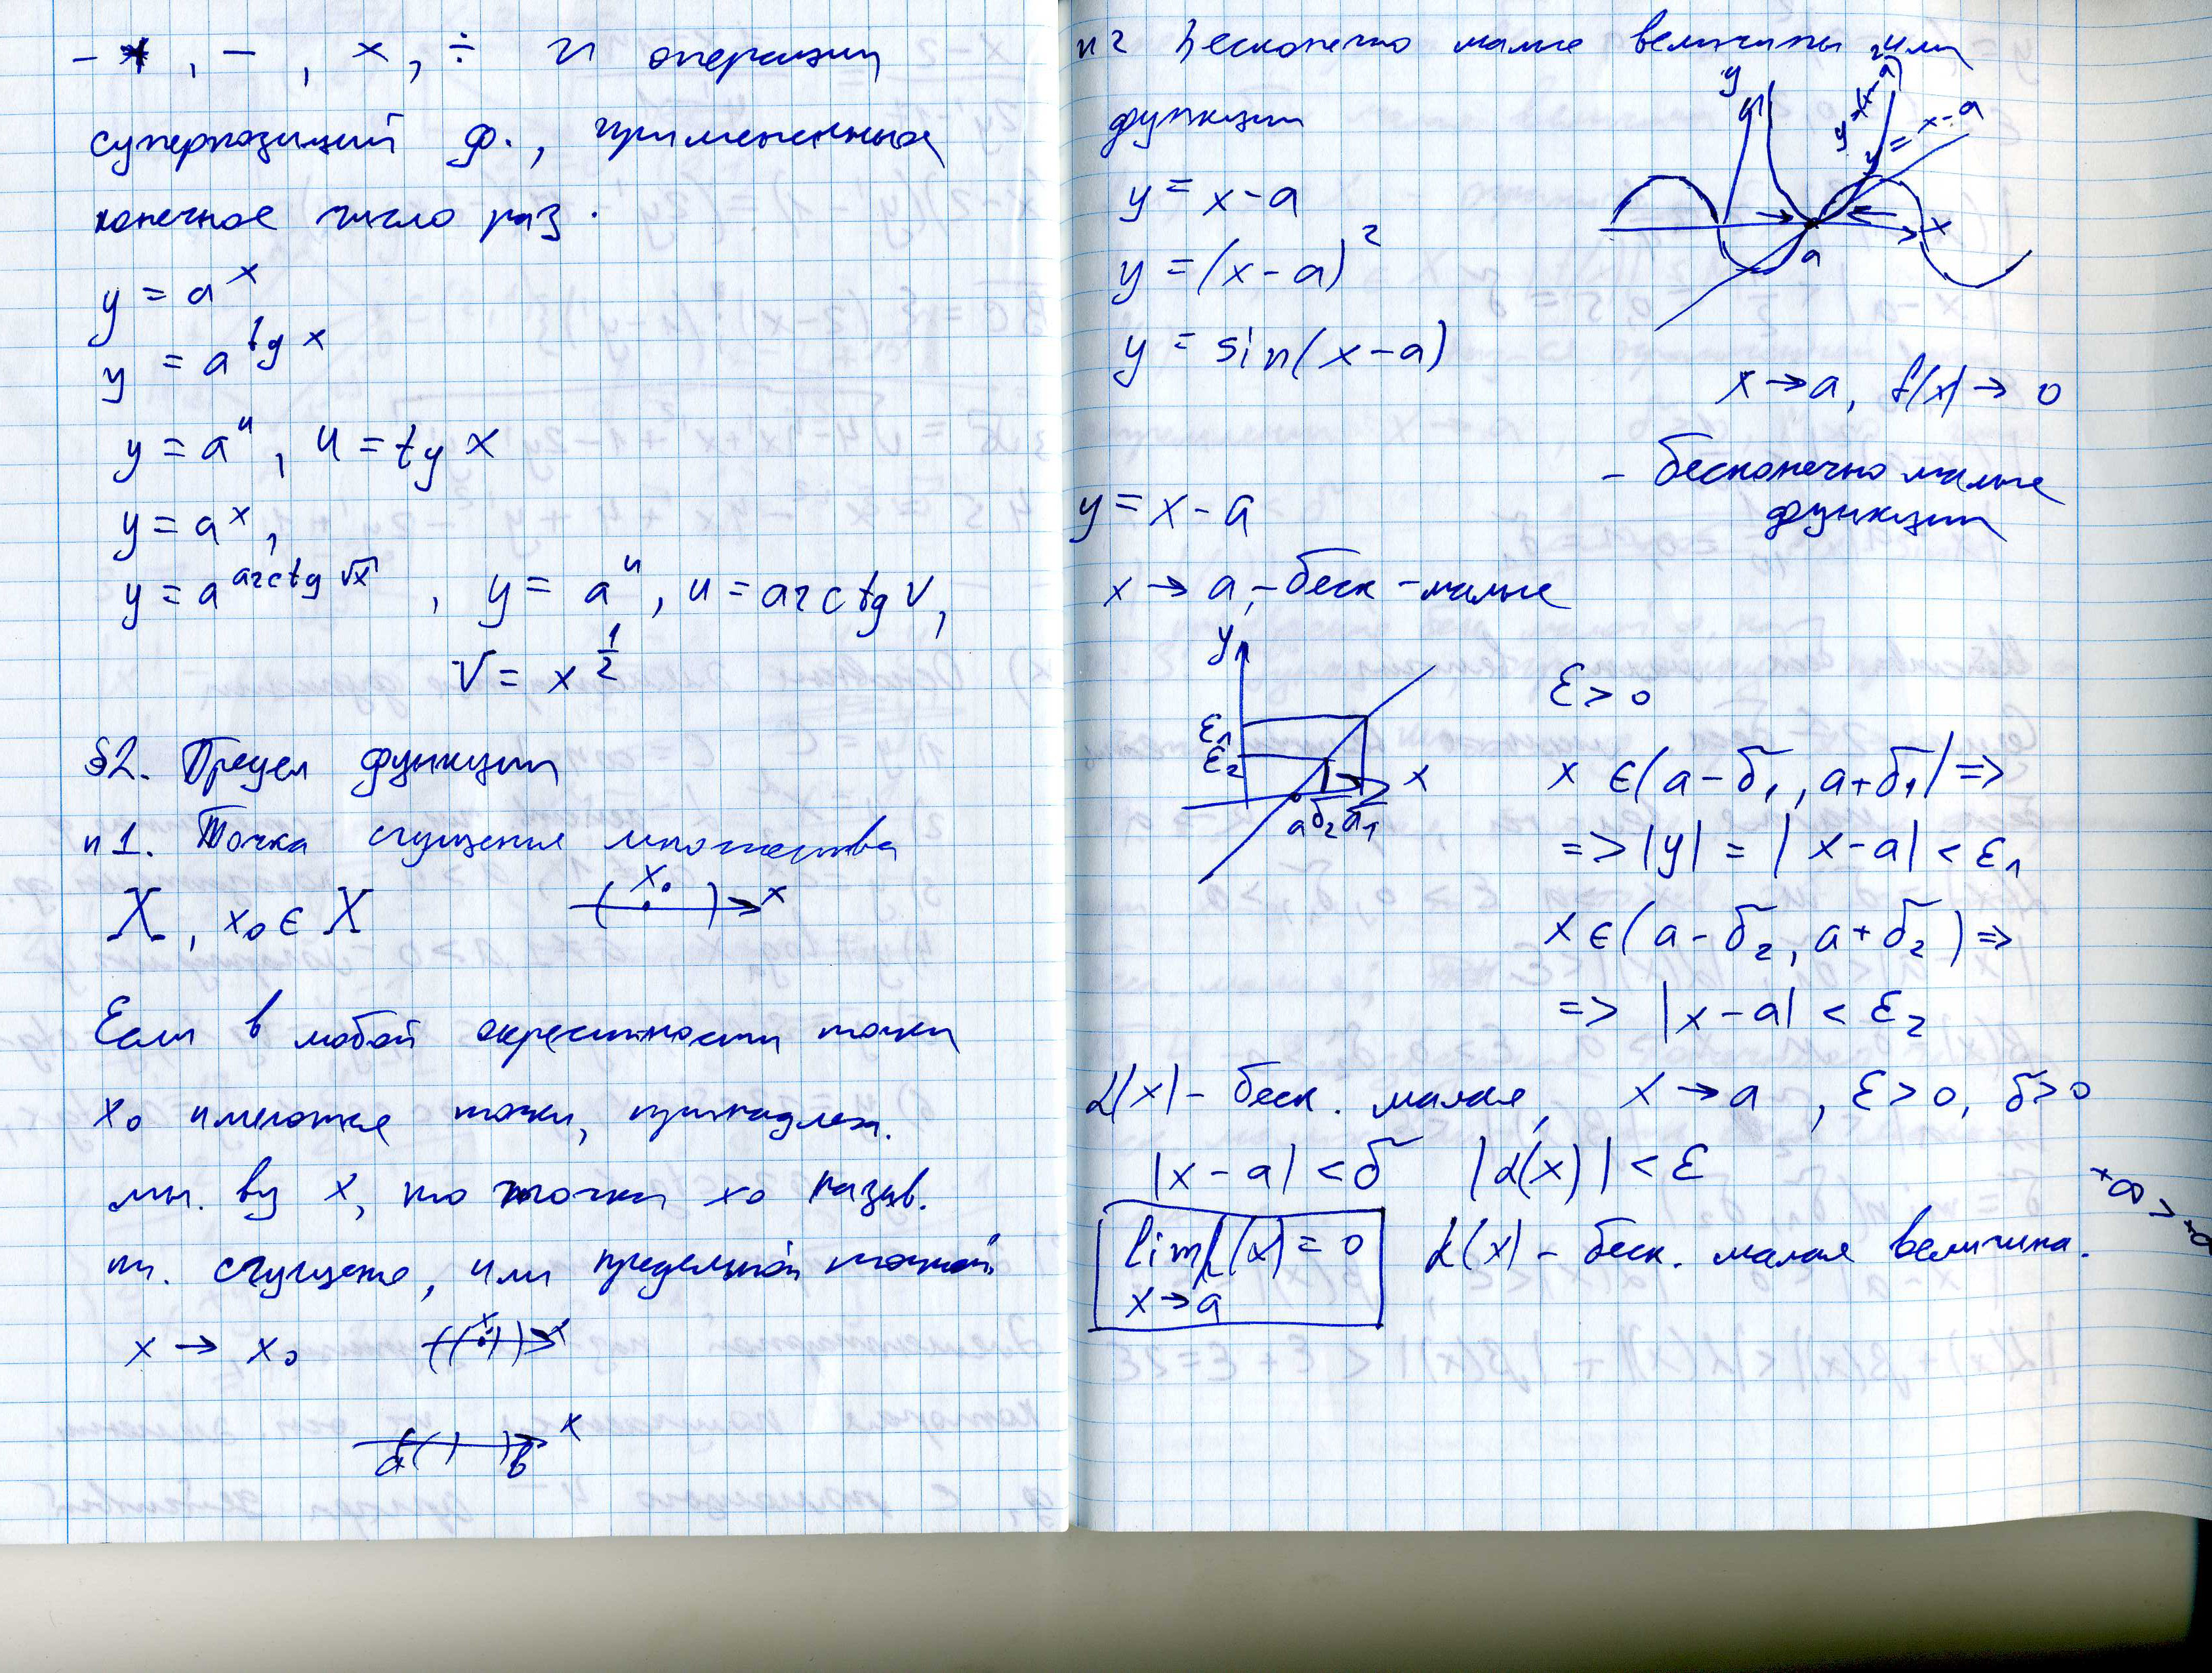 - +, -, ×, ÷ и операции
суперпозиций ф., примененные
конечное число раз.
y = a^x
y = a^{tg x}
y = a^u, u = tg x
y = a^x,
y = a^{arctg √x}, y = a^u, u = arctg V,
V = x^{1/2}
§2. Предел функции
п1. Точка сгущения множества
X, x₀ ∈ X
x₀ x
Если в любой окрестности точки
x₀ имеются точки, принадлеж.
мн. ву X, то точка x₀ назыв.
т. сгущение, или предельной точкой.
x → x₀
x₀ x
a b x
п2 Бесконечно малые величины или
функции
y = x - a
y = (x - a)²
y = sin(x - a)
y
y = x - a
x
a
x → a, f(x) → 0
- бесконечно малые
функции
y = x - a
x → a, - беск - малые
y
ε₁
ε₂
x
a δ₂ δ₁
ε > 0
x ∈ (a - δ₁, a + δ₁) =>
=> |y| = |x - a| < ε₁
x ∈ (a - δ₂, a + δ₂) =>
=> |x - a| < ε₂
α(x) - беск. малая, x → a, ε > 0, δ > 0
|x - a| < δ |α(x)| < ε
lim α(x) = 0 α(x) - беск. малая величина.
x → a